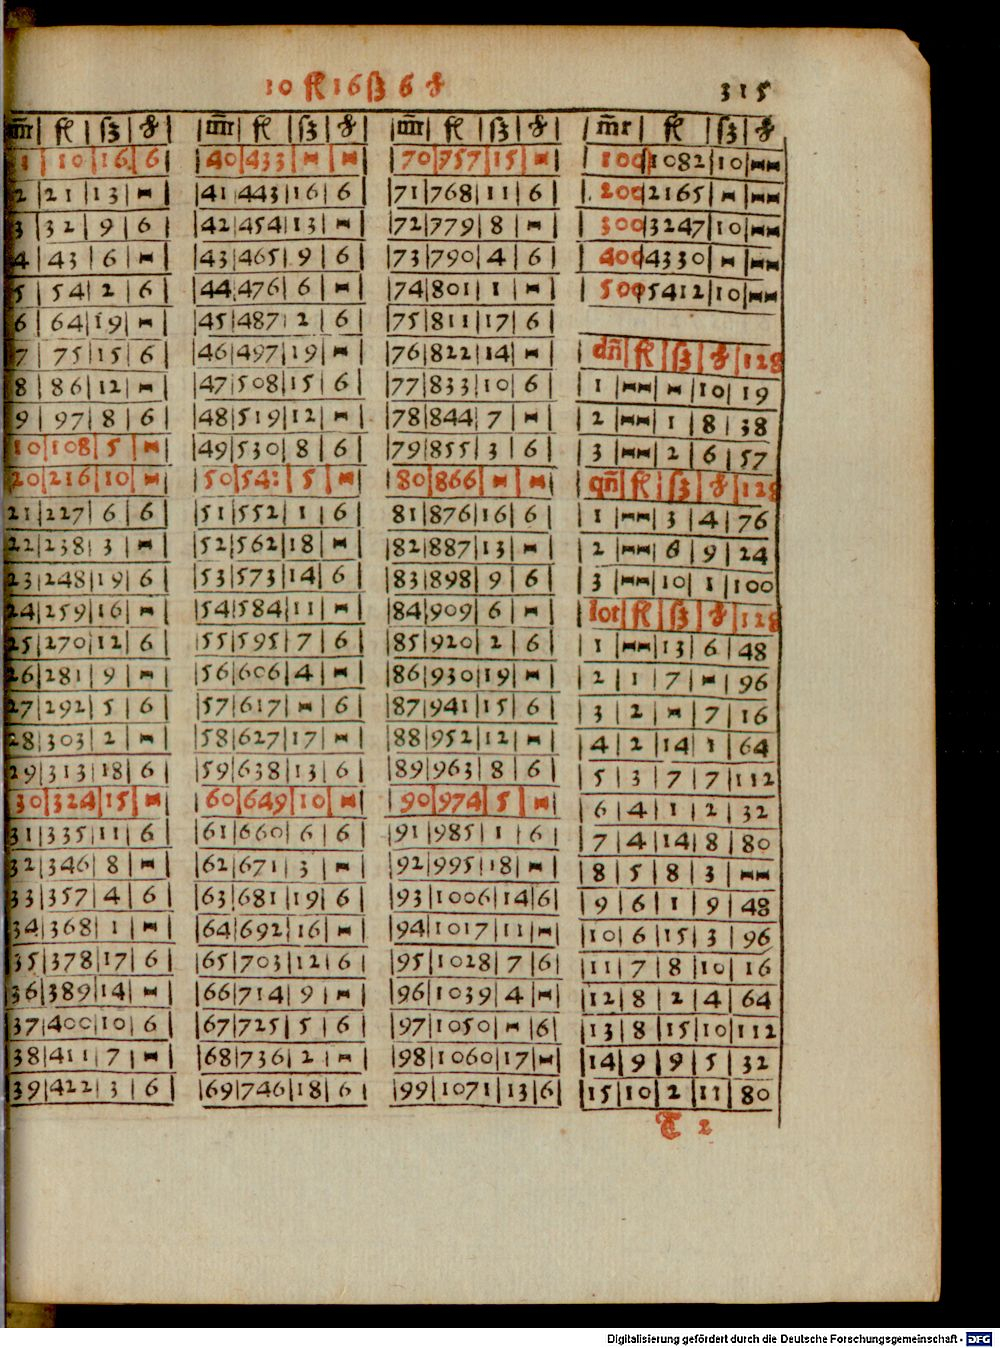 10 fl 16 ß 6 ₰ 315
m̃r | fl | ß | ₰ | m̃r | fl | ß | ₰ | m̃r | fl | ß | ₰ | m̃r | fl | ß | ₰
1 | 10 | 16 | 6 | 40 | 433 | - | - | 70 | 757 | 15 | - | 100 | 1082 | 10 | --
2 | 21 | 13 | - | 41 | 443 | 16 | 6 | 71 | 768 | 11 | 6 | 200 | 2165 | - | --
3 | 32 | 9 | 6 | 42 | 454 | 13 | - | 72 | 779 | 8 | - | 300 | 3247 | 10 | --
4 | 43 | 6 | - | 43 | 465 | 9 | 6 | 73 | 790 | 4 | 6 | 400 | 4330 | - | --
5 | 54 | 2 | 6 | 44 | 476 | 6 | - | 74 | 801 | 1 | - | 500 | 5412 | 10 | --
6 | 64 | 19 | - | 45 | 487 | 2 | 6 | 75 | 811 | 17 | 6
7 | 75 | 15 | 6 | 46 | 497 | 19 | - | 76 | 822 | 14 | - | dñ | fl | ß | ₰ | 128
8 | 86 | 12 | - | 47 | 508 | 15 | 6 | 77 | 833 | 10 | 6 | 1 | -- | - | 10 | 19
9 | 97 | 8 | 6 | 48 | 519 | 12 | - | 78 | 844 | 7 | - | 2 | -- | 1 | 8 | 38
10 | 108 | 5 | - | 49 | 530 | 8 | 6 | 79 | 855 | 3 | 6 | 3 | -- | 2 | 6 | 57
20 | 216 | 10 | - | 50 | 54: | 5 | - | 80 | 866 | - | - | qñ | fl | ß | ₰ | 128
21 | 227 | 6 | 6 | 51 | 552 | 1 | 6 | 81 | 876 | 16 | 6 | 1 | -- | 3 | 4 | 76
22 | 238 | 3 | - | 52 | 562 | 18 | - | 82 | 887 | 13 | - | 2 | -- | 6 | 9 | 24
23 | 248 | 19 | 6 | 53 | 573 | 14 | 6 | 83 | 898 | 9 | 6 | 3 | -- | 10 | 1 | 100
24 | 259 | 16 | - | 54 | 584 | 11 | - | 84 | 909 | 6 | - | lot | fl | ß | ₰ | 128
25 | 270 | 12 | 6 | 55 | 595 | 7 | 6 | 85 | 920 | 2 | 6 | 1 | -- | 13 | 6 | 48
26 | 281 | 9 | - | 56 | 606 | 4 | - | 86 | 930 | 19 | - | 2 | 1 | 7 | - | 96
27 | 292 | 5 | 6 | 57 | 617 | - | 6 | 87 | 941 | 15 | 6 | 3 | 2 | - | 7 | 16
28 | 303 | 2 | - | 58 | 627 | 17 | - | 88 | 952 | 12 | - | 4 | 2 | 14 | 1 | 64
29 | 313 | 18 | 6 | 59 | 638 | 13 | 6 | 89 | 963 | 8 | 6 | 5 | 3 | 7 | 7 | 112
30 | 324 | 15 | - | 60 | 649 | 10 | - | 90 | 974 | 5 | - | 6 | 4 | 1 | 2 | 32
31 | 335 | 11 | 6 | 61 | 660 | 6 | 6 | 91 | 985 | 1 | 6 | 7 | 4 | 14 | 8 | 80
32 | 346 | 8 | - | 62 | 671 | 3 | - | 92 | 995 | 18 | - | 8 | 5 | 8 | 3 | --
33 | 357 | 4 | 6 | 63 | 681 | 19 | 6 | 93 | 1006 | 14 | 6 | 9 | 6 | 1 | 9 | 48
34 | 368 | 1 | - | 64 | 692 | 16 | - | 94 | 1017 | 11 | - | 10 | 6 | 15 | 3 | 96
35 | 378 | 17 | 6 | 65 | 703 | 12 | 6 | 95 | 1028 | 7 | 6 | 11 | 7 | 8 | 10 | 16
36 | 389 | 14 | - | 66 | 714 | 9 | - | 96 | 1039 | 4 | - | 12 | 8 | 2 | 4 | 64
37 | 400 | 10 | 6 | 67 | 725 | 5 | 6 | 97 | 1050 | - | 6 | 13 | 8 | 15 | 10 | 112
38 | 411 | 7 | - | 68 | 736 | 2 | - | 98 | 1060 | 17 | - | 14 | 9 | 9 | 5 | 32
39 | 422 | 3 | 6 | 69 | 746 | 18 | 6 | 99 | 1071 | 13 | 6 | 15 | 10 | 2 | 11 | 80
T 2
Digitalisierung gefördert durch die Deutsche Forschungsgemeinschaft - DFG